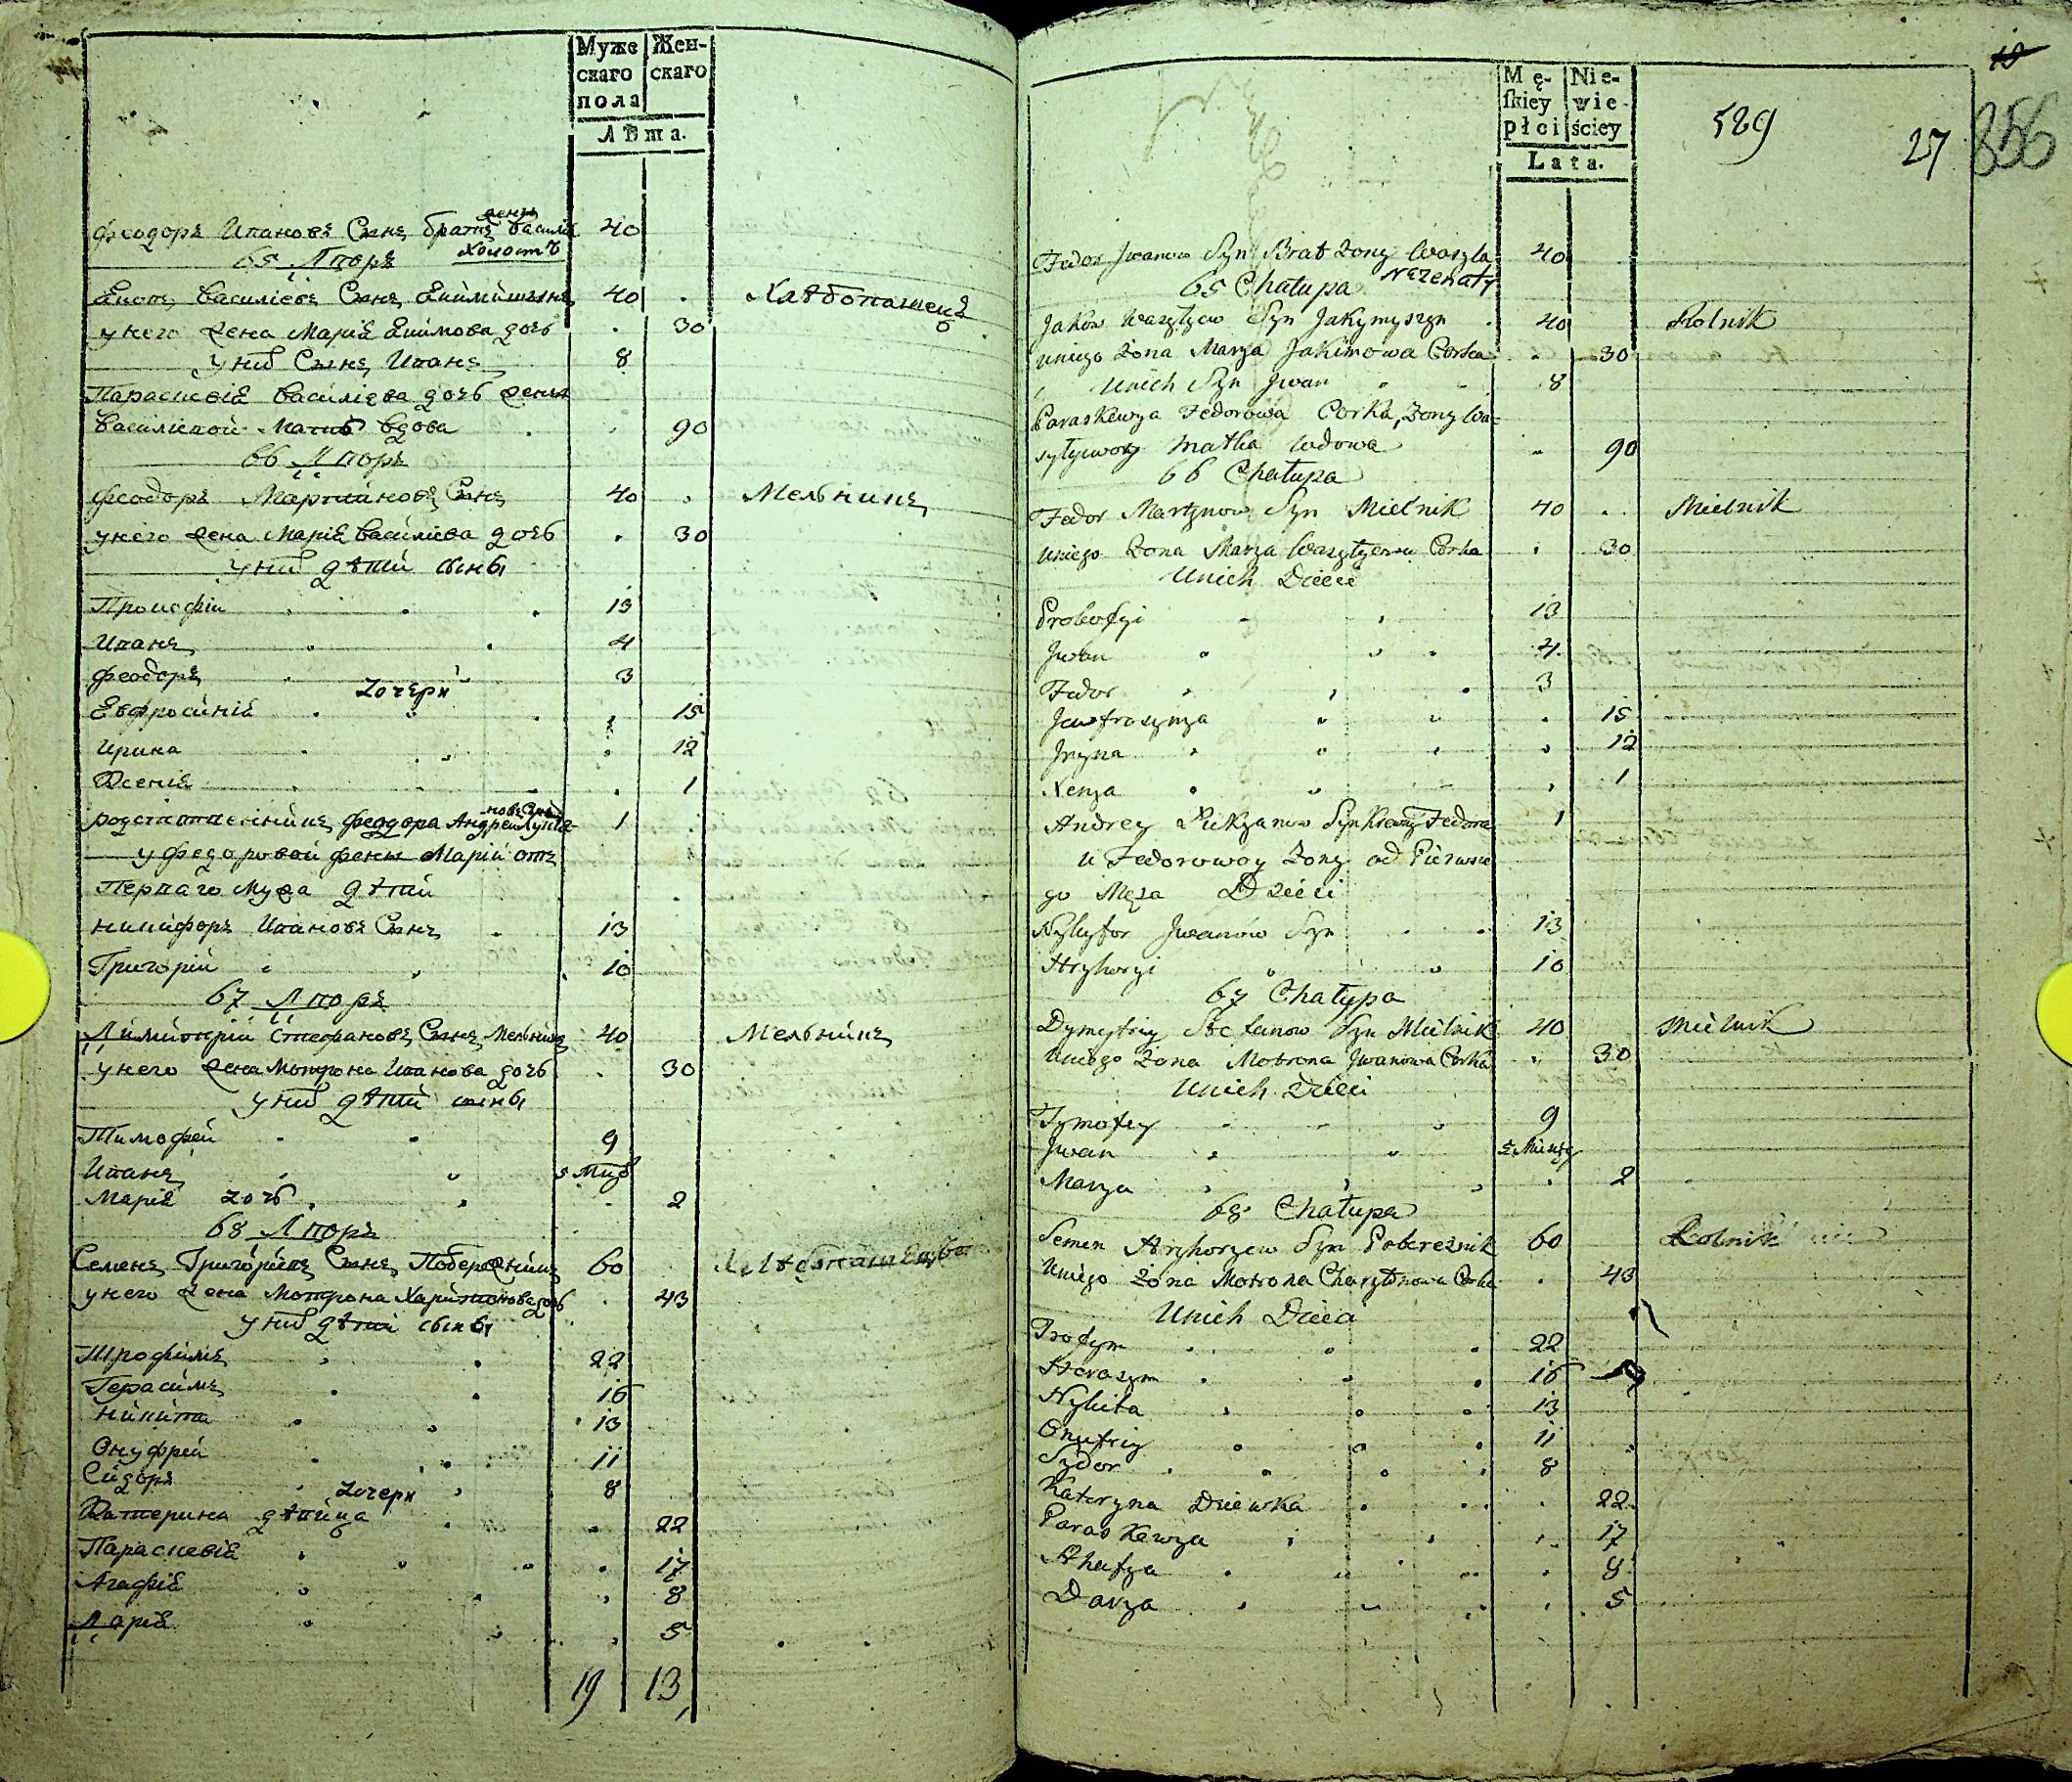 Муже Жен-
скаго скаго
пола
Лѣта.
Феодоръ Ивановъ Сынъ братъ жены Василія 40
65 Дворъ холостъ
Василіевъ Сынъ 40 Хлѣбопашецъ
у него жена Марія Якимова дочь 30
у них Сынъ Иванъ 8
Параскевія Василіева дочь жены
Василіевой мать вдова 90
66 Дворъ
Феодоръ Мартиновъ Сынъ 40 Мельникъ
у него жена Марія Василіева дочь 30
у них дѣти сыны
Прокофій 13
Иванъ 4
Феодоръ 3
дочери
Евфросинія 15
Ирина 12
Ксенія 1
Феодора Андрей 1
у Федоровой жены Маріи отъ
Перваго Мужа дѣти
Никифоръ Ивановъ Сынъ 13
Григорій 10
67 Дворъ
Димитрій Стефановъ Сынъ Мельникъ 40 Мельникъ
у него жена Мотрона Иванова дочь 30
у них дѣти сыны
Тимофей 9
Иванъ
Марія дочь 2
68 Дворъ
Семенъ Григорьевъ Сынъ Побережникъ 60
у него жена Мотрона Харитонова дочь 43
у них дѣти сыны
Трофимъ 22
Герасимъ 16
Никита 13
Онуфрей 11
Сидоръ 8
дочери
Катерина дѣвица 22
Параскевія 17
Агафія 8
Дарія 5
19 13
Mę- Nie-
ſkiey wie
płci ściey
Lata.
589
27
856
Fedor Jwanow Syn Brat Zony Wasyla 40
65 Chałupa Nezenaty
Jakow Wasylyew Syn Jakymyszyn 40 Rolnik
Uniego Zona Marya Jakimowa Corka 30
Unich Syn Jwan 8
Paraskewya Fedorowa Corka, Zony Wa-
sylyewoy Matka Wdowa 90
66 Chałupa
Fedor Martynow Syn Mielnik 40 Mielnik
Uniego Zona Marya Wasylyewa Corka 30
Unich Dzieci
Prokofyi 13
Jwan 4
Fedor 3
Jewfrosynya 15
Jryna 12
Xenya 1
Andrey Syn Fedora 1
u Fedorowoy Zony od Pierwsze
go Męza Dzieci
Nykyfor Jwanow Syn 13
Hryhoryi 10
67 Chałupa
Dymytriy Stefanow Syn Mielnik 40 Mielnik
Uniego Zona Motrona Jwanowa Corka 30
Unich Dzieci
Tymofey 9
Jwan
Marya 2
68 Chałupa
Semen Hryhoryew Syn Pobereznik 60 Rolnik
Uniego Zona Motrona Charytonowa Corka 43
Unich Dzieci
Trofym 22
Herasym 16
Nykita 13
Onufriy 11
Sydor 8
Kateryna Dziewka 22
Paraskewya 17
Ahafya 8
Darya 5